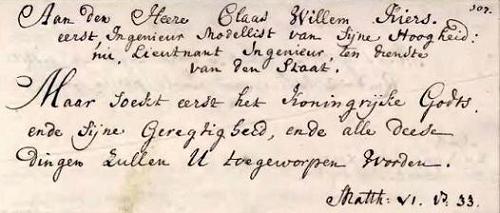 307.
Aan den Heere Claas Willem Kiers.
eerst Ingenieur Modellist van Sijne Hoogheid:
nu, Lieutnant Ingenieur, ten dienste
van den Staat.
Maar soekt eerst het Koningrijke Godts.
ende Sijne Geregtigheid, ende alle deese
dingen zullen U toegeworpen Worden.
Matth: VI. vs. 33.